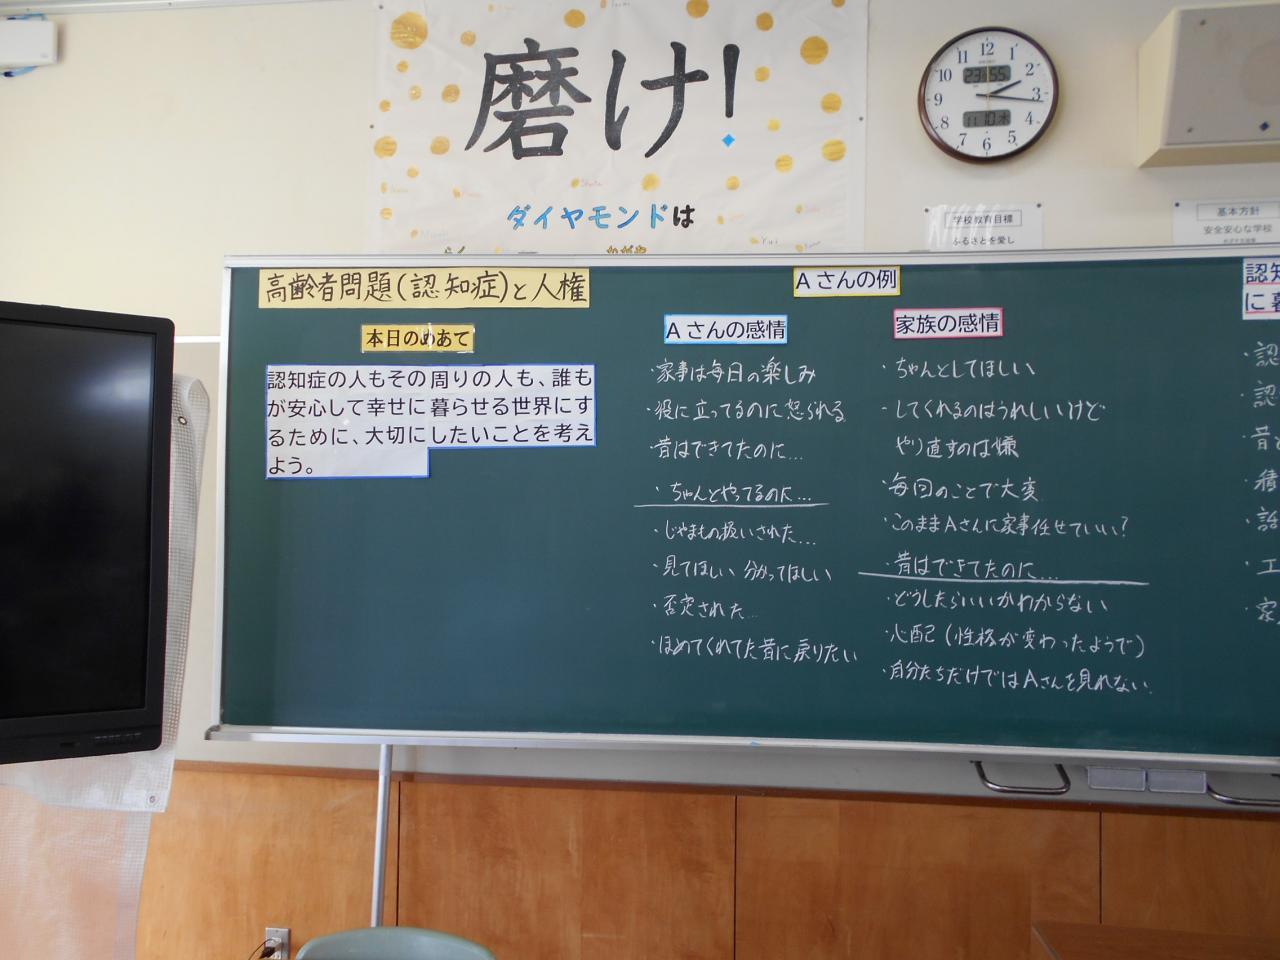 磨け!
ダイヤモンドは
12
1
2
3
4
5
6
7
8
9
10
11 10 水
学校教育目標
ふるさとを愛し
基本方針
安全安心な学校
高齢者問題(認知症)と人権
本日のめあて
認知症の人もその周りの人も、誰も
が安心して幸せに暮らせる世界にす
るために、大切にしたいことを考え
よう。
Aさんの例
Aさんの感情
・家事は毎日の楽しみ
・役に立ってるのに怒られる
・昔はできてたのに…
・ちゃんとやってるのに…
・じゃまもの扱いされた…
・見てほしい 分かってほしい
・否定された…
・ほめてくれてた昔に戻りたい
家族の感情
・ちゃんとしてほしい
・してくれるのはうれしいけど
やり直すのは嫌
・毎回のことで大変
・このままAさんに家事任せていい?
・昔はできてたのに…
・どうしたらいいかわからない
・心配(性格が変わったようで)
・自分たちだけではAさんを見れない
認知
に暮
・認
・認
・昔
・積
・話
・工
・家